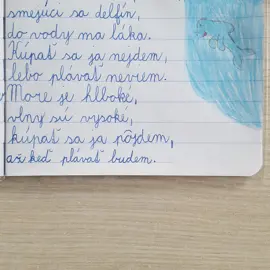 smejúci sa delfín,
do vody ma láka.
Kúpať sa ja nejdem,
lebo plávať neviem.
More je hlboké,
vlny sú vysoké,
kúpať sa ja pôjdem,
až keď plávať budem.